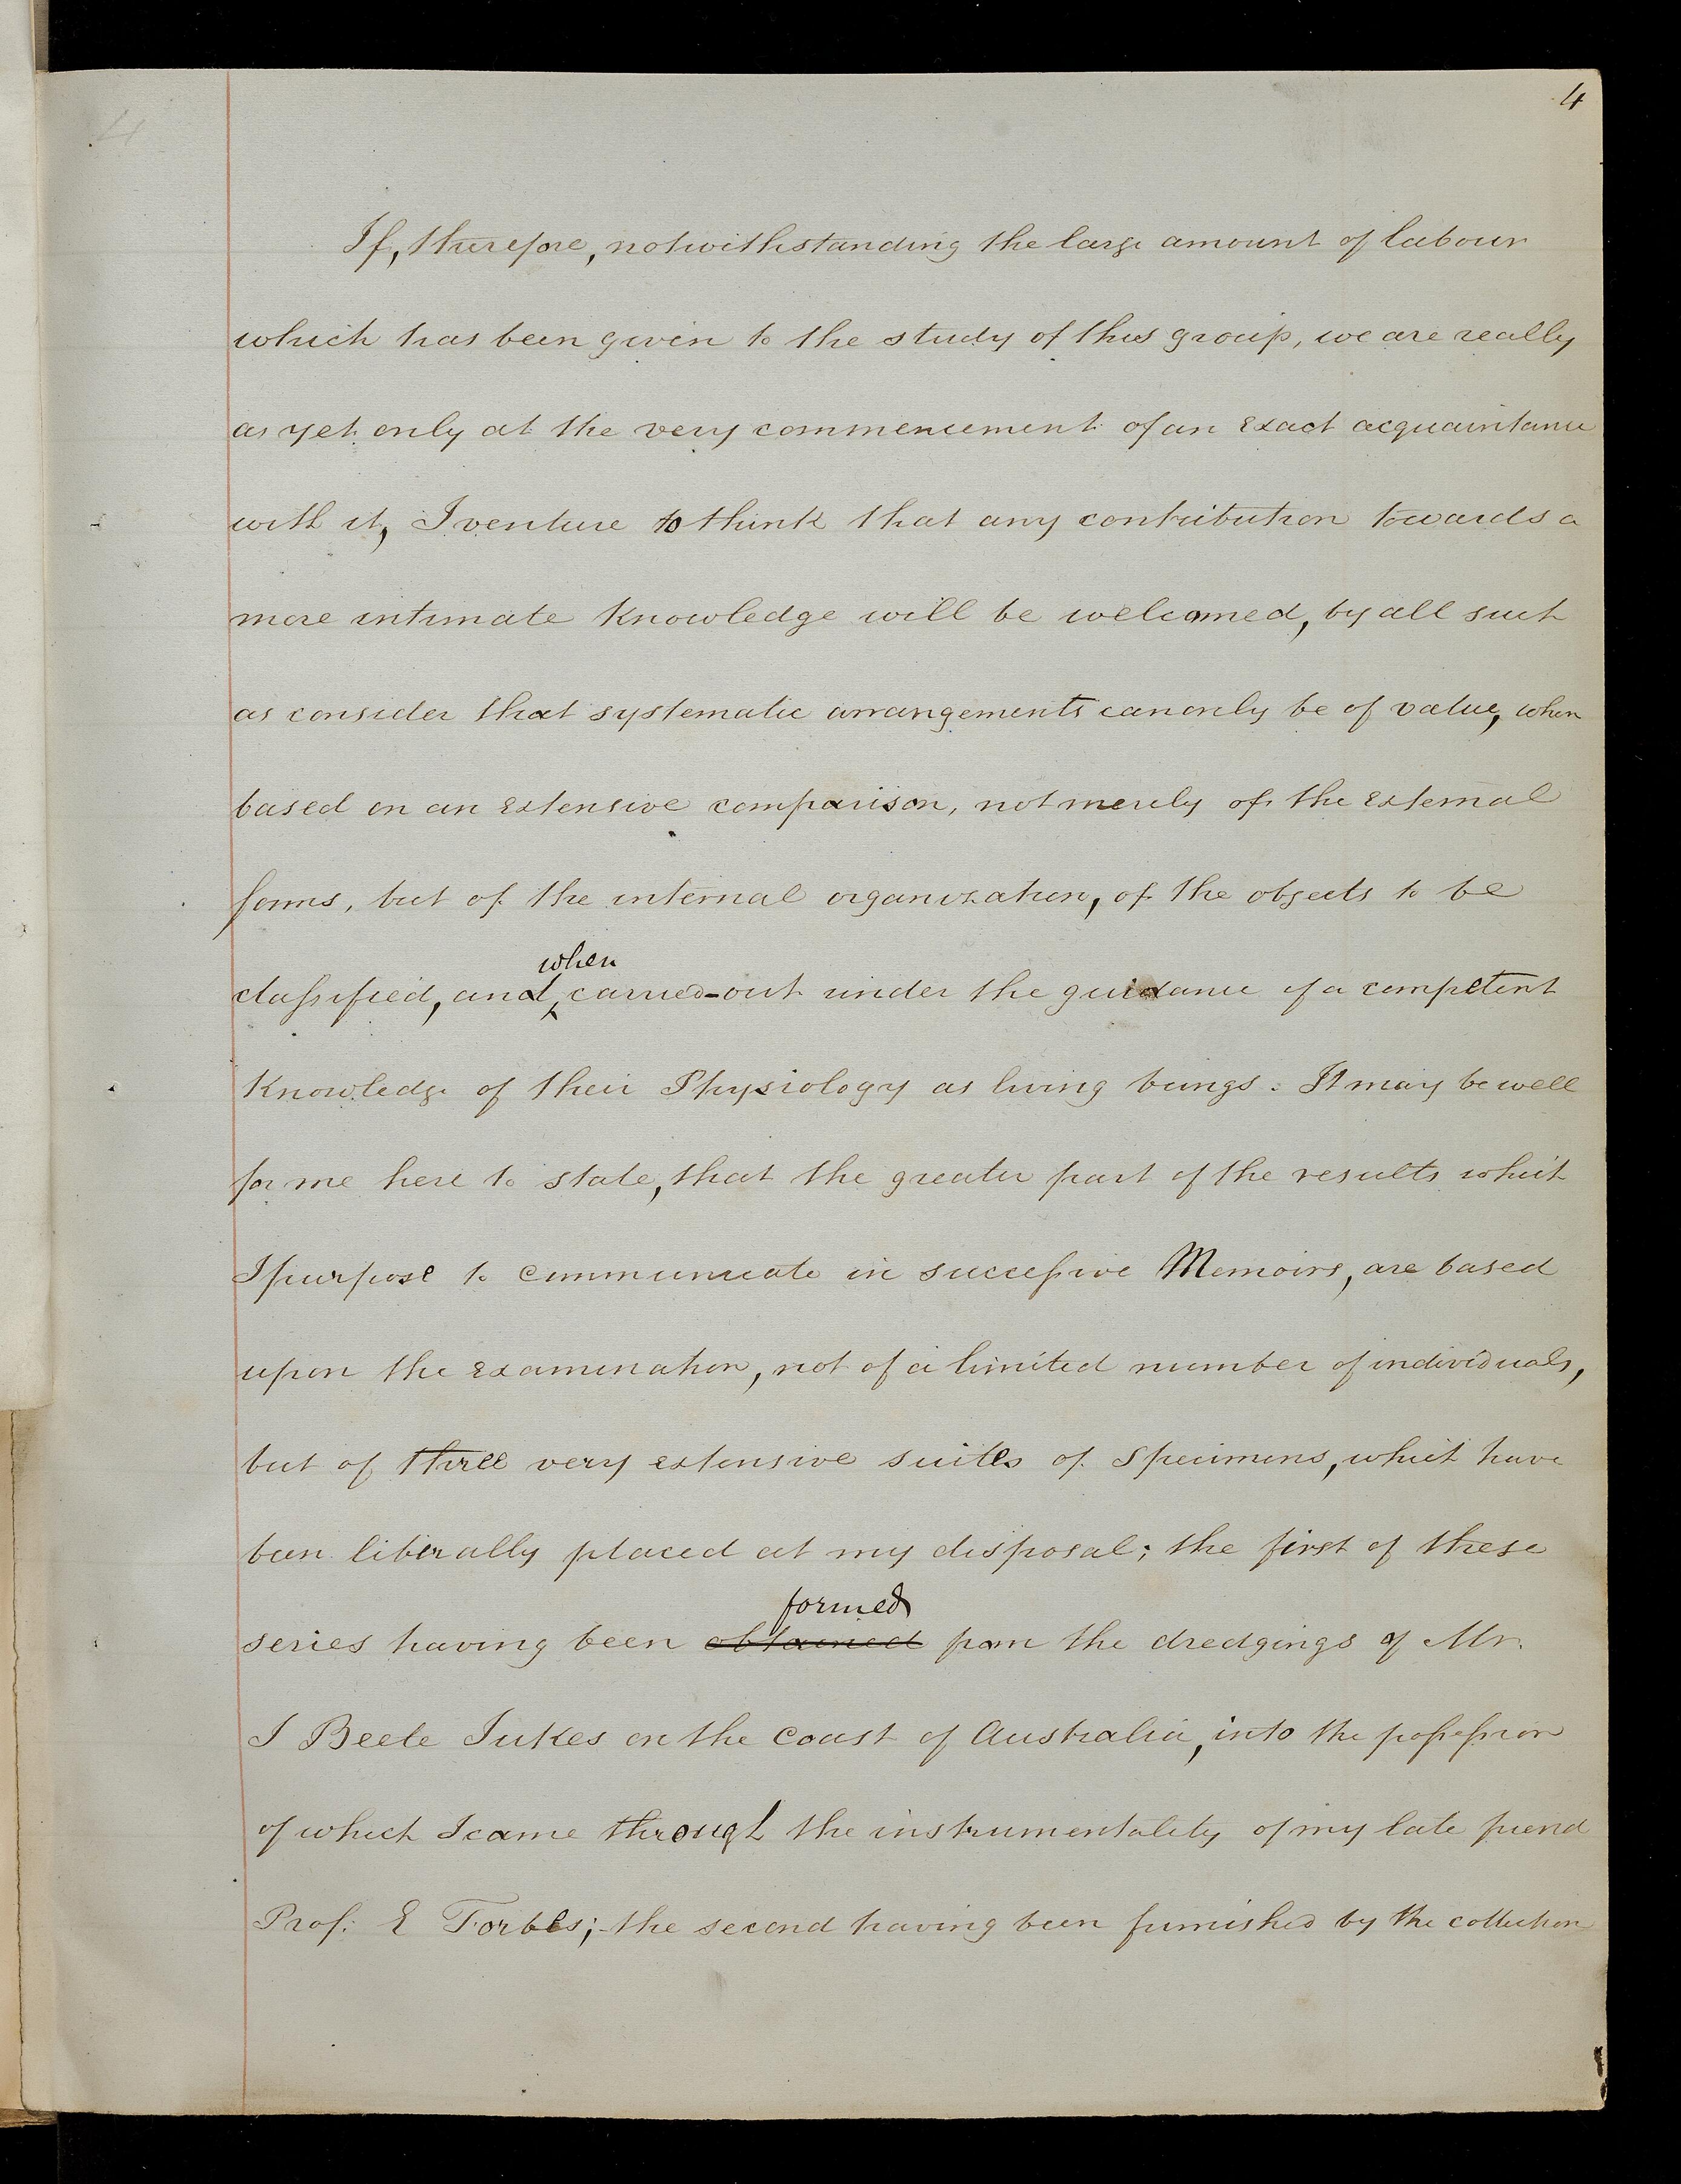 4
4
If, therefore, notwithstanding the large amount of labour
which has been given to the study of this group, we are really
as yet only at the very commencement of an exact acquaintance
with it, I venture to think that any contribution towards a
more intimate Knowledge will be welcomed, by all such
as consider that systematic arrangements can only be of value, when
based on an extensive comparison, not merely of the external
forms, but of the internal organization, of the objects to be
when
classified, and carried-out under the guidance of a competent
Knowledge of their Physiology as living beings. It may be well
for me here to state, that the greater part of the results which
I purpose to communicate in successive Memoirs, are based
upon the examination, not of a limited number of individuals,
but of three very extensive suites of specimens, which have
been liberally placed at my disposal; the first of these
formed
series having been obtained from the dredgings of Mr.
J Beete Jukes on the coast of Australia, into the possession
of which I came through the instrumentality of my late friend
Prof: E Forbes; the second having been furnished by the collection